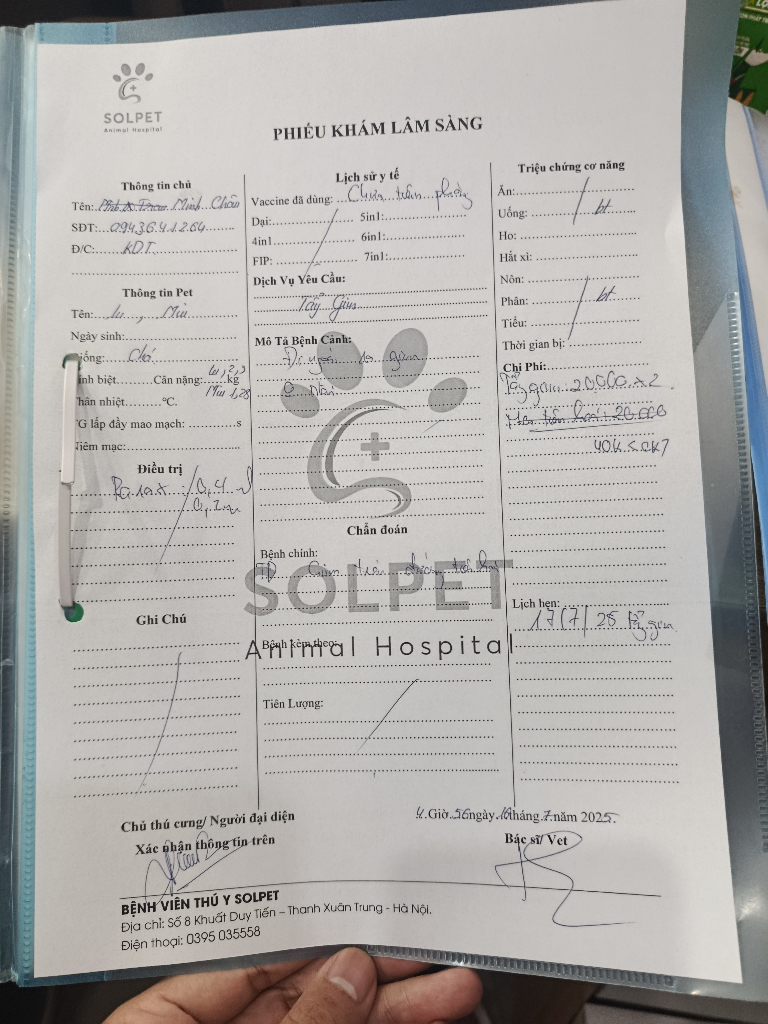 SOLPET
Animal Hospital
PHIẾU KHÁM LÂM SÀNG
Thông tin chủ
Tên: Minh Châu
SĐT: 0943641264
Đ/C: KDT
Thông tin Pet
Tên: Lu, Miu
Ngày sinh:
iống: Chó
inh biệt Cân nặng: Lu 2,2 kg
Miu 1,28
hân nhiệt °C.
G lấp đầy mao mạch: s
iêm mạc:
Điều trị
0,4 ml
0,2 ml
Ghi Chú
Lịch sử y tế
Vaccine đã dùng: Chưa tiêm phòng
Dại: 5in1:
4in1 6in1:
FIP: 7in1:
Dịch Vụ Yêu Cầu:
Tẩy Giun
Mô Tả Bệnh Cảnh:
Đi ngoài ra giun
Chẩn đoán
Bệnh chính:
SOLPET
Animal Hospital
Bệnh kèm theo:
Tiên Lượng:
Triệu chứng cơ năng
Ăn:
Uống: bt
Ho:
Hắt xì:
Nôn:
Phân: bt
Tiểu:
Thời gian bị:
Chi Phí:
Tẩy giun 20.000 x 2
Men tiêu hoá: 20.000
40k
Lịch hẹn:
17/7/25 tẩy giun
Chủ thú cưng/ Người đại diện
Xác nhận thông tin trên
4 Giờ 56 ngày tháng 7 năm 2025
Bác sĩ/ Vet
BỆNH VIÊN THÚ Y SOLPET
Địa chỉ: Số 8 Khuất Duy Tiến – Thanh Xuân Trung - Hà Nội.
Điện thoại: 0395 035558